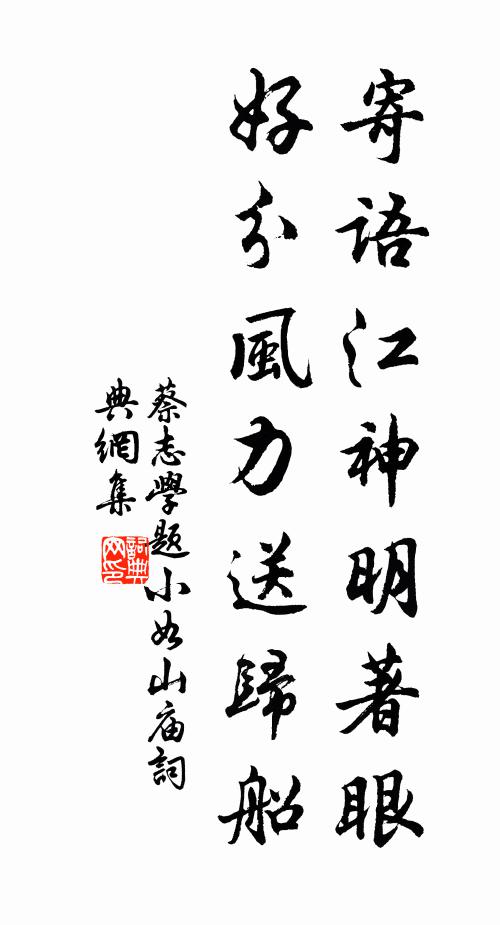 寄語江神明著眼
好分風力送歸船
蔡志學題小如山庙詞
典網集
詞典
网